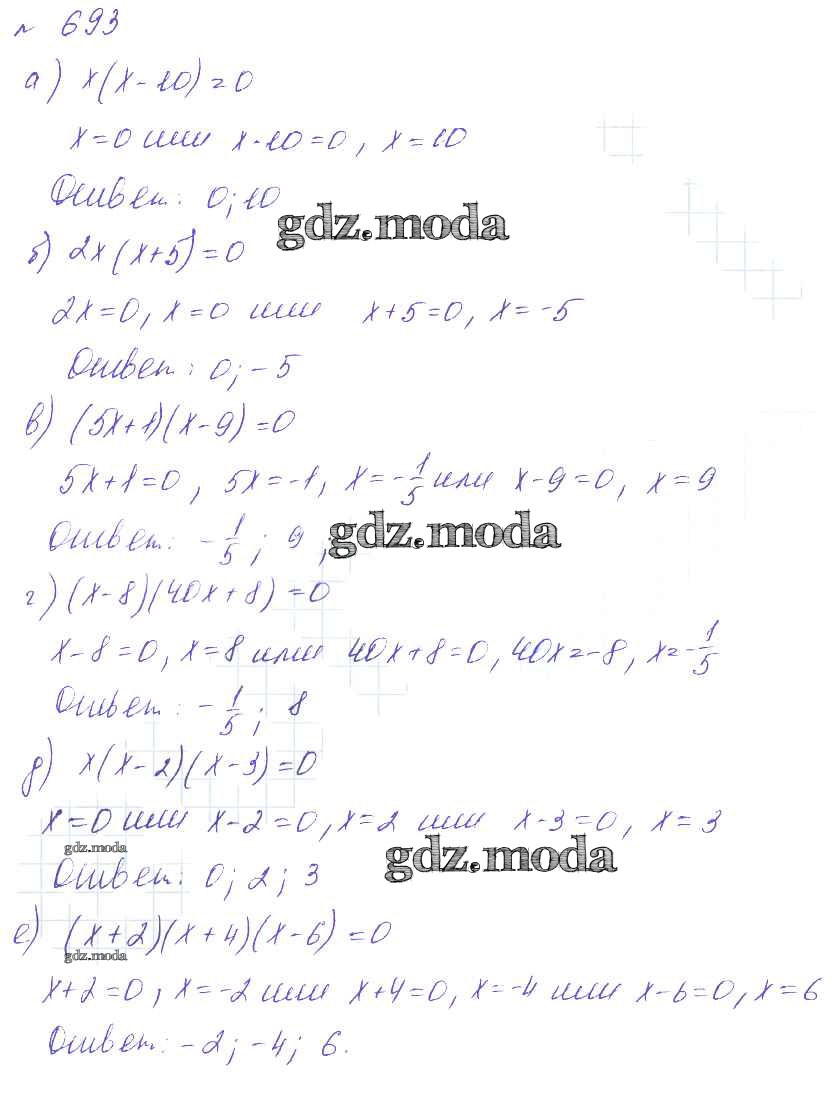 № 693
а) x(x-10)=0
x=0 или x-10=0, x=10
Ответ: 0; 10
gdz.moda
б) 2x(x+5)=0
2x=0, x=0 или x+5=0, x=-5
Ответ: 0; -5
в) (5x+1)(x-9)=0
5x+1=0, 5x=-1, x=-1/5 или x-9=0, x=9
Ответ: -1/5; 9;
gdz.moda
г) (x-8)(40x+8)=0
x-8=0, x=8 или 40x+8=0, 40x=-8, x=-1/5
Ответ: -1/5; 8
д) x(x-2)(x-3)=0
x=0 или x-2=0, x=2 или x-3=0, x=3
gdz.moda
gdz.moda
Ответ: 0; 2; 3
е) (x+2)(x+4)(x-6)=0
gdz.moda
x+2=0, x=-2 или x+4=0, x=-4 или x-6=0, x=6
Ответ: -2; -4; 6.